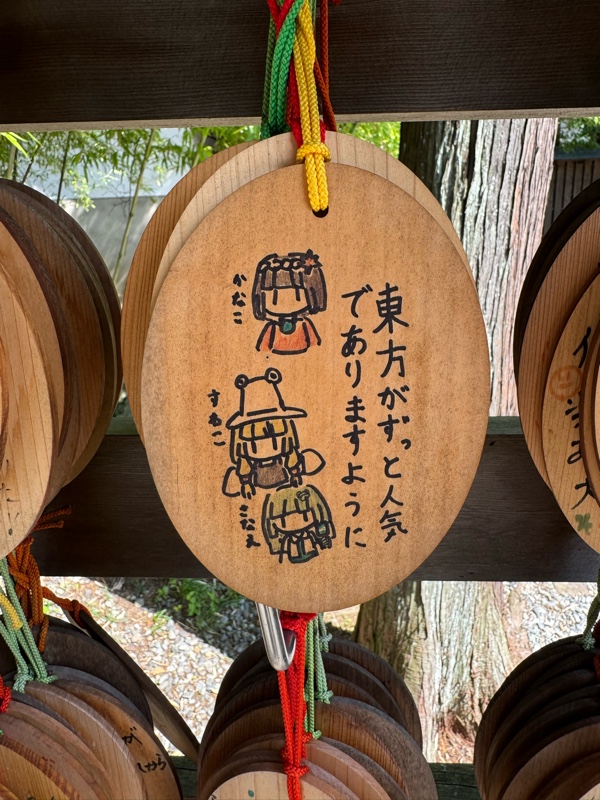 東方がずっと人気
でありますように
かなこ
すわこ
さなえ
が